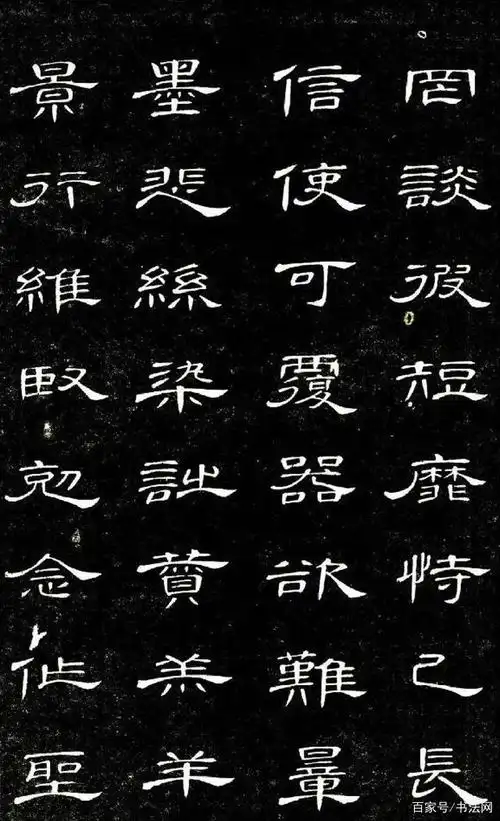 罔談彼短靡恃己長
信使可覆器欲難量
墨悲絲染詩贊羔羊
景行維臤剋念作聖
百家号/书法网